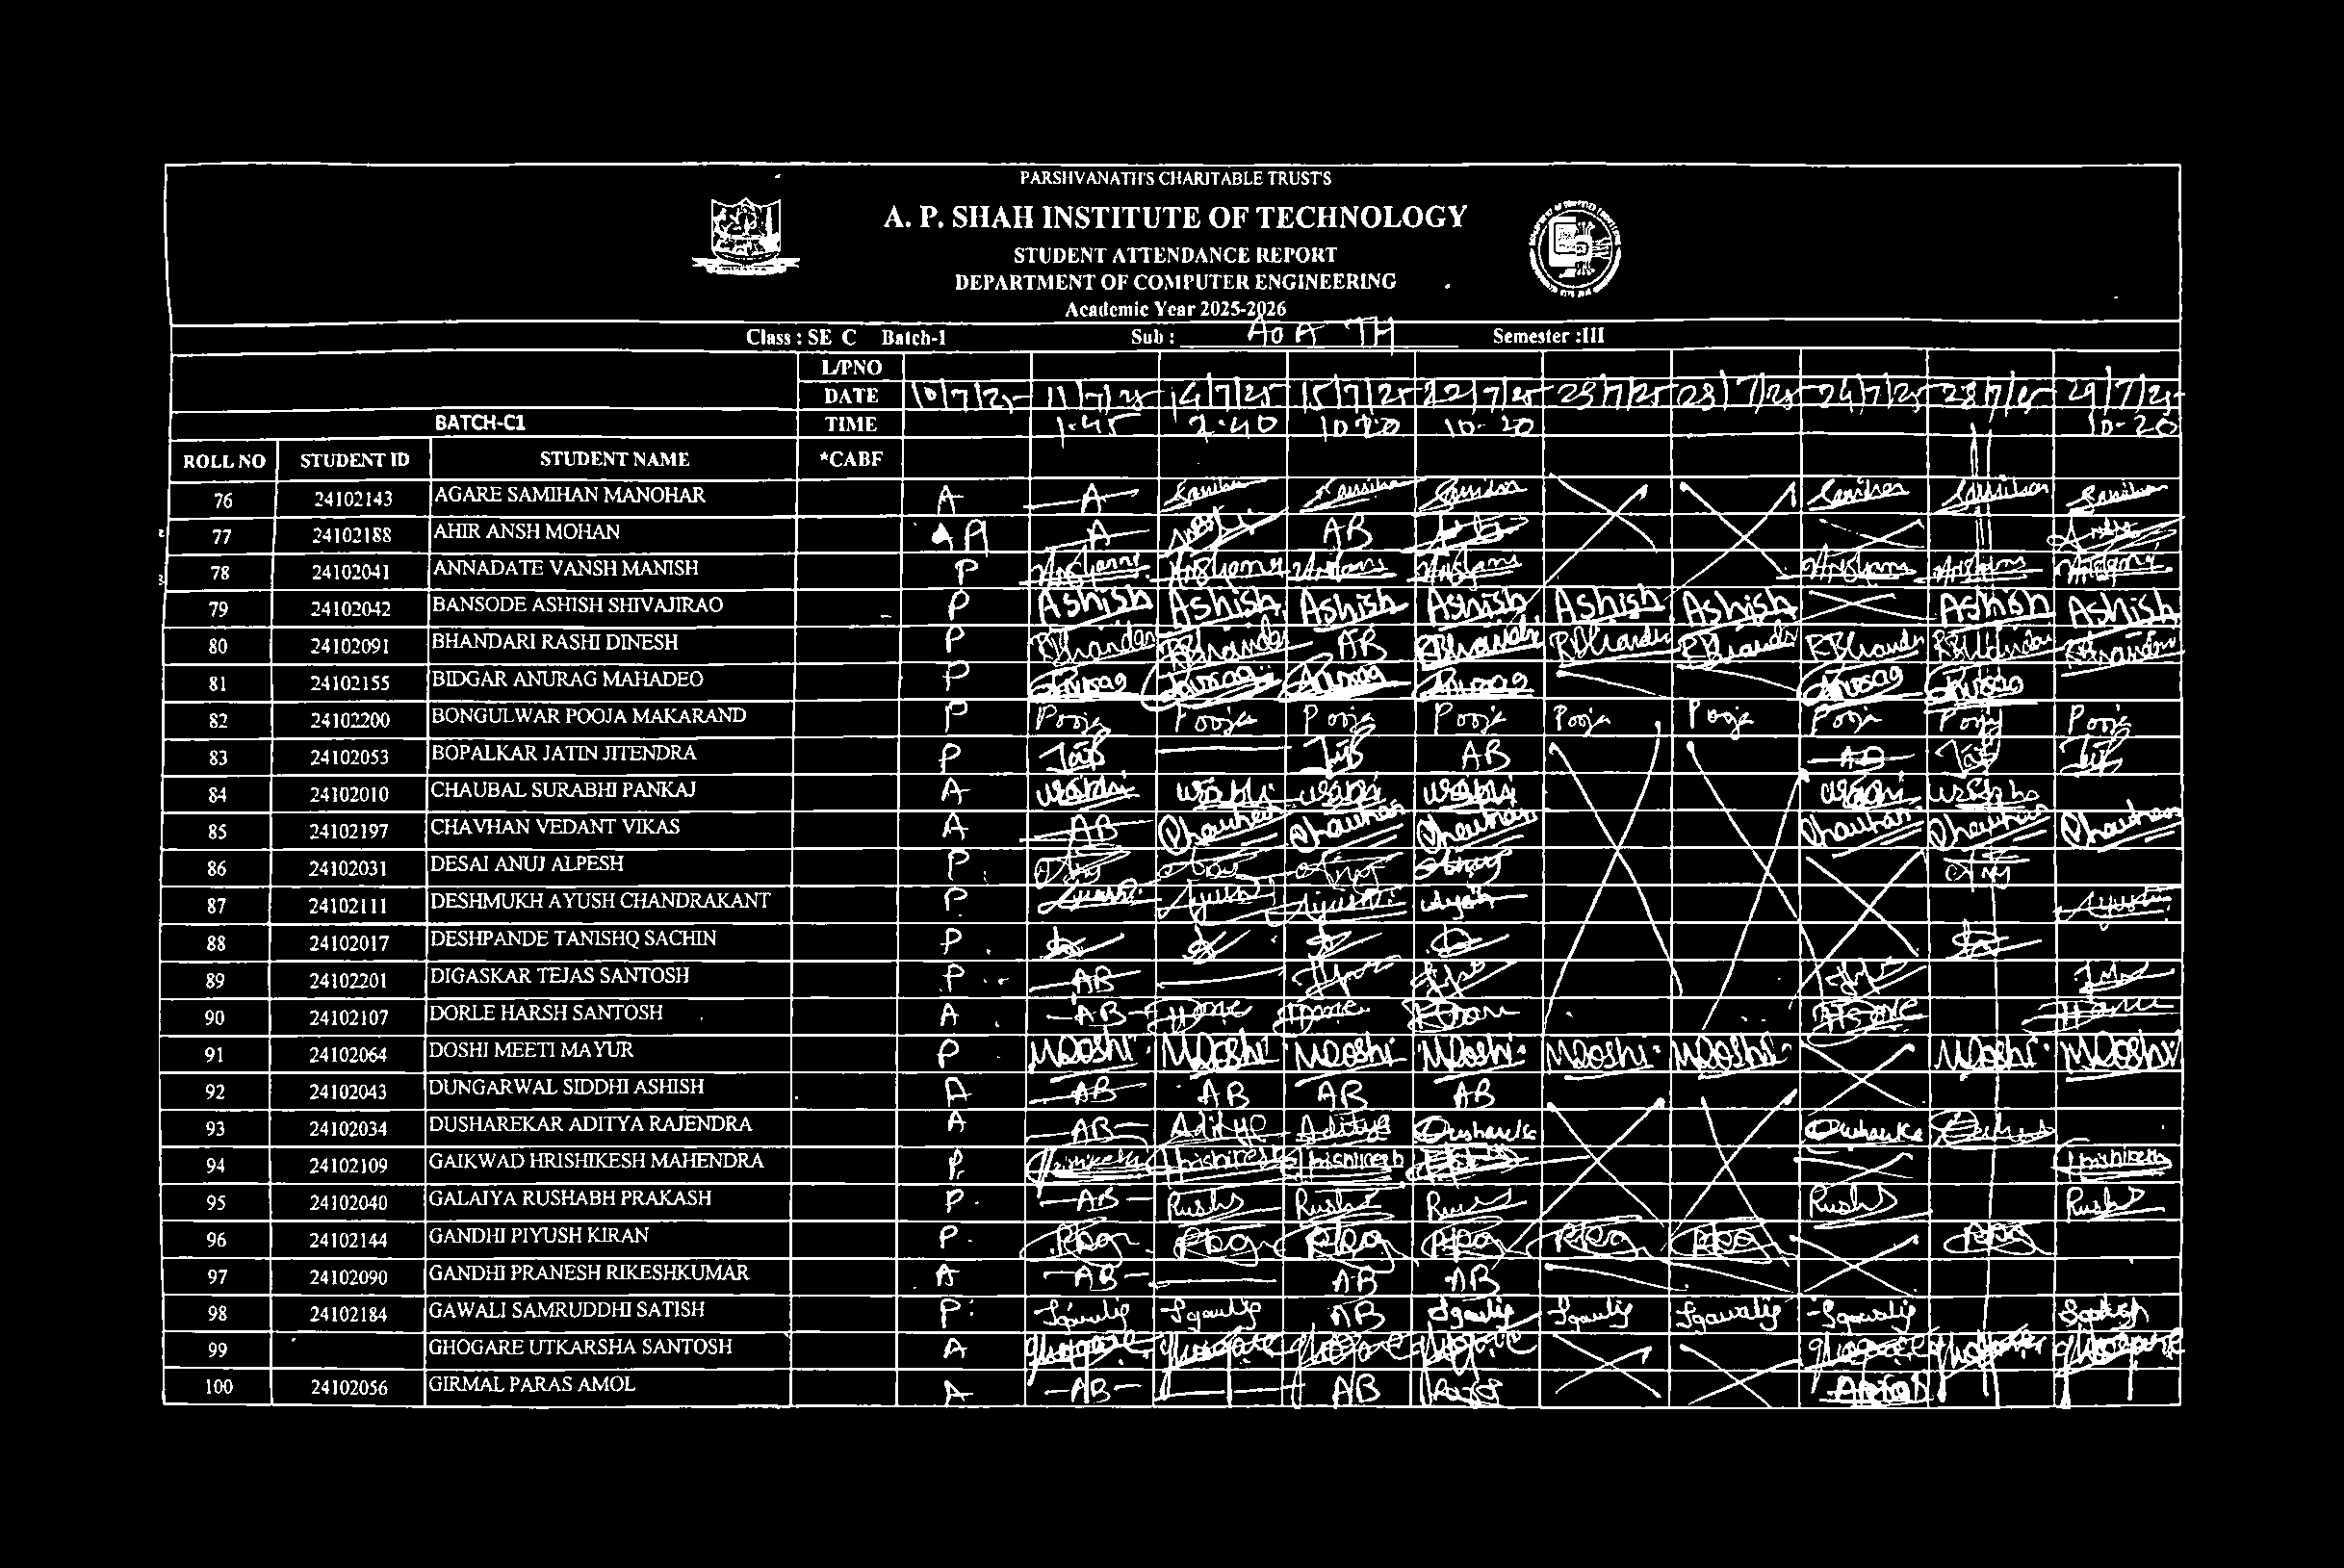 PARSHVANATH'S CHARITABLE TRUST'S
A. P. SHAH INSTITUTE OF TECHNOLOGY
STUDENT ATTENDANCE REPORT
DEPARTMENT OF COMPUTER ENGINEERING
Academic Year 2025-2026
Class : SE C Batch-1 Sub : AOA TH Semester :III
L/PNO
DATE 10/7/25 11/7/25 14/7/25 15/7/25 22/7/25 23/7/25 23/7/25 24/7/25 28/7/25 29/7/25
BATCH-C1 TIME 1.45 2.40 10.20 10-20 10-20
ROLL NO STUDENT ID STUDENT NAME *CABF
76 24102143 AGARE SAMIHAN MANOHAR A A
77 24102188 AHIR ANSH MOHAN A A AB
78 24102041 ANNADATE VANSH MANISH P
79 24102042 BANSODE ASHISH SHIVAJIRAO P Ashish Ashish Ashish Ashish Ashish Ashish Ashish Ashish
80 24102091 BHANDARI RASHI DINESH P RBhandari RBhandari AB RBhandari RBhandari RBhandari RBhandari RBhandari RBhandari
81 24102155 BIDGAR ANURAG MAHADEO P Anurag Anurag Anurag Anurag Anurag Anurag
82 24102200 BONGULWAR POOJA MAKARAND P Pooja Pooja Pooja Pooja Pooja Pooja Pooja Pooja Pooja
83 24102053 BOPALKAR JATIN JITENDRA P AB AB
84 24102010 CHAUBAL SURABHI PANKAJ A
85 24102197 CHAVHAN VEDANT VIKAS A AB Chavhan Chavhan Chavhan Chavhan Chavhan Chavhan
86 24102031 DESAI ANUJ ALPESH P
87 24102111 DESHMUKH AYUSH CHANDRAKANT P Ayush Ayush Ayush Ayush
88 24102017 DESHPANDE TANISHQ SACHIN P
89 24102201 DIGASKAR TEJAS SANTOSH P AB
90 24102107 DORLE HARSH SANTOSH A AB
91 24102064 DOSHI MEETI MAYUR P MDoshi MDoshi MDoshi MDoshi MDoshi MDoshi MDoshi MDoshi
92 24102043 DUNGARWAL SIDDHI ASHISH A AB AB AB AB
93 24102034 DUSHAREKAR ADITYA RAJENDRA A AB Aditya Aditya
94 24102109 GAIKWAD HRISHIKESH MAHENDRA P Hrishikesh Hrishikesh Hrishikesh Hrishikesh
95 24102040 GALAIYA RUSHABH PRAKASH P AB
96 24102144 GANDHI PIYUSH KIRAN P
97 24102090 GANDHI PRANESH RIKESHKUMAR A AB AB AB
98 24102184 GAWALI SAMRUDDHI SATISH P AB
99 GHOGARE UTKARSHA SANTOSH A Ghogare Ghogare Ghogare Ghogare Ghogare Ghogare Ghogare
100 24102056 GIRMAL PARAS AMOL A AB AB